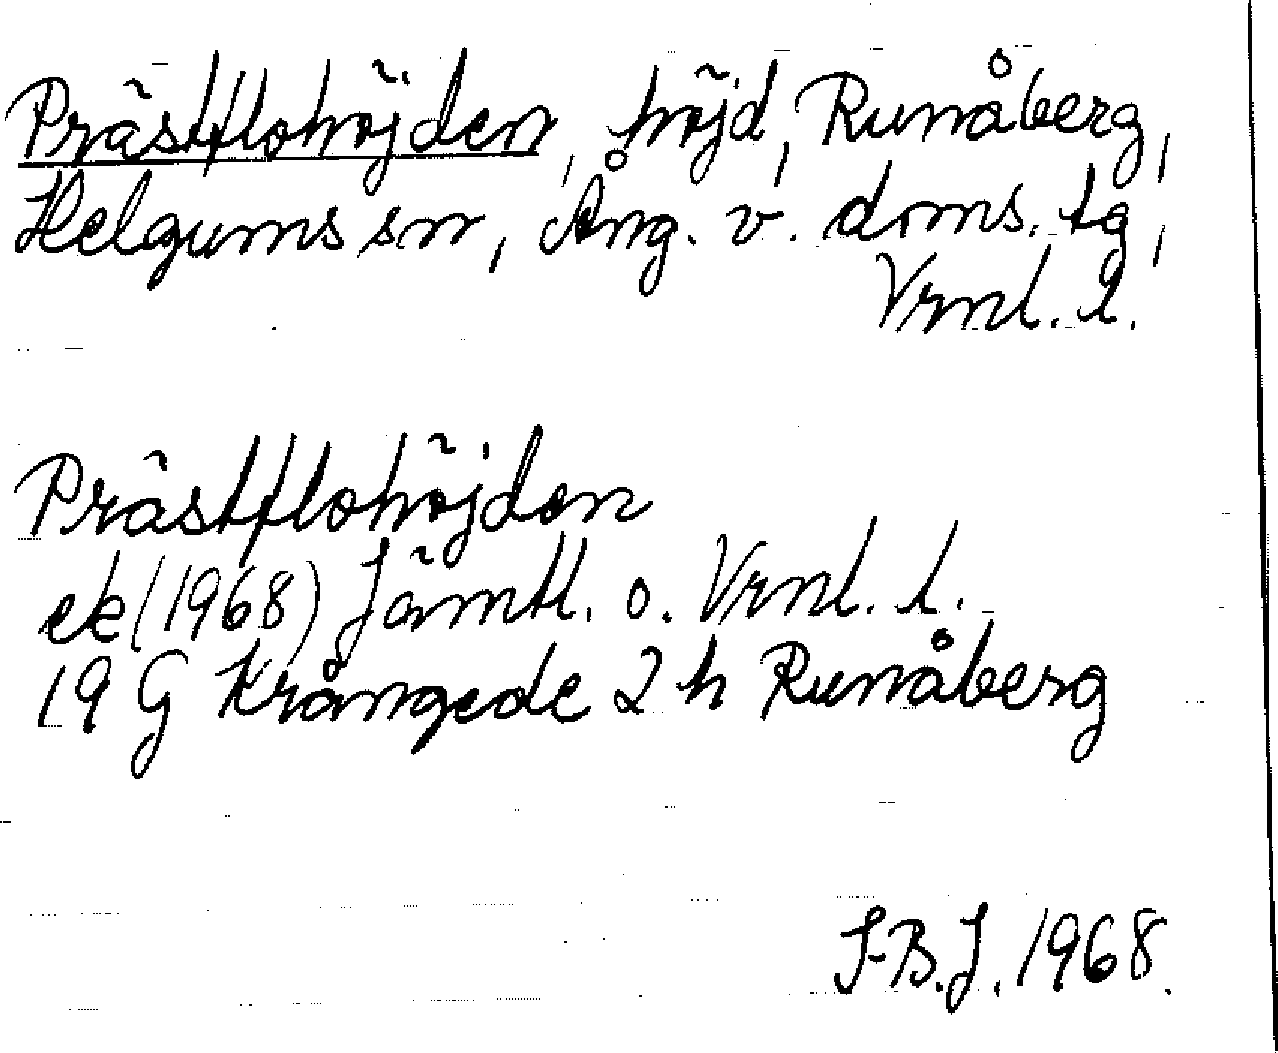 Prästflohöjden, höjd, Runåberg,
Helgums sn, Ång. v. doms. tg,
Vrnl. l.
Prästflohöjden
ek (1968) Jämtl. o. Vrnl. l.
19 G Krångede 2 h Runåberg
S-B.J. 1968.